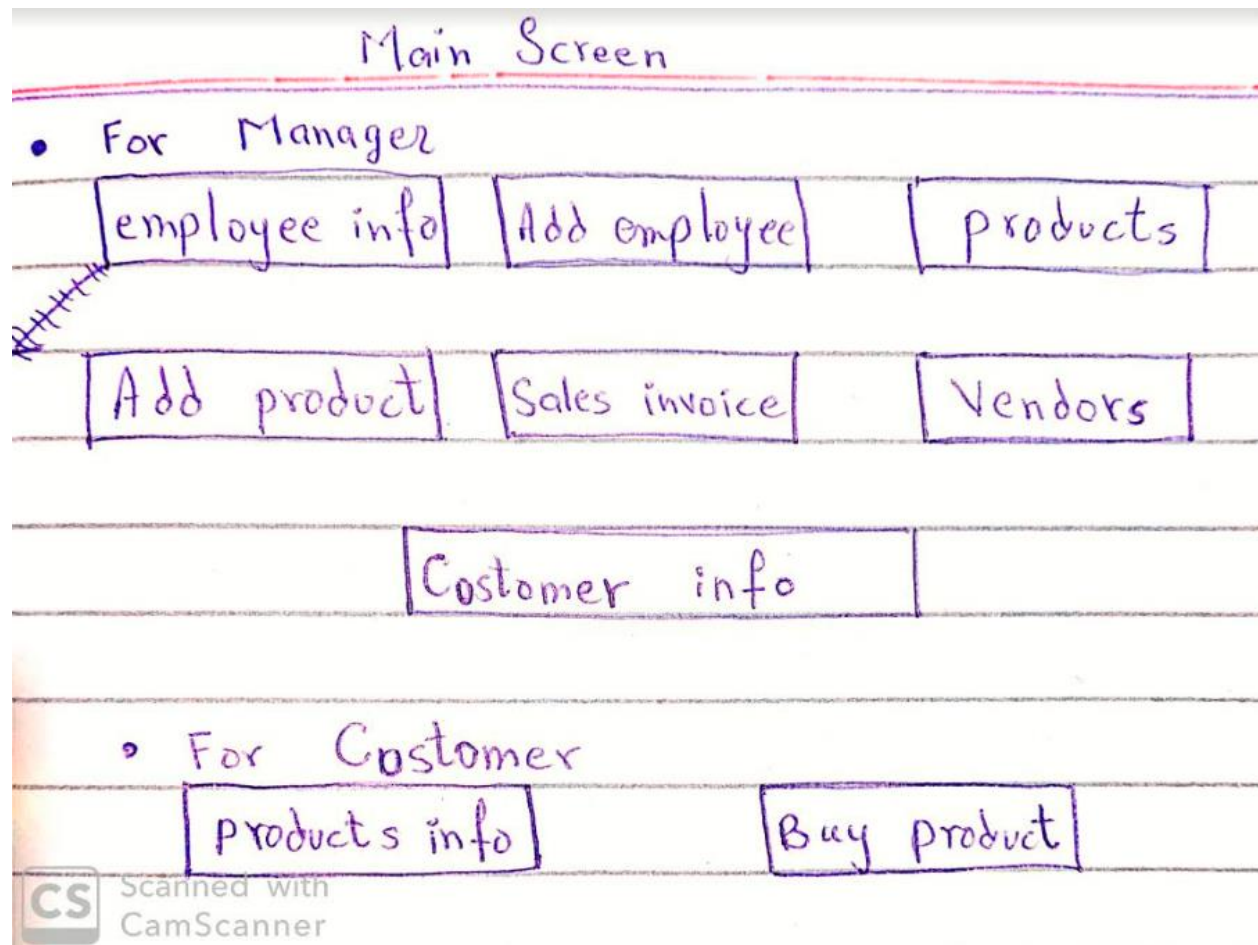 Main Screen
• For Manager
employee info Add employee products
Add product Sales invoice Vendors
Costomer info
• For Costomer
products info Buy product
CS Scanned with
CamScanner